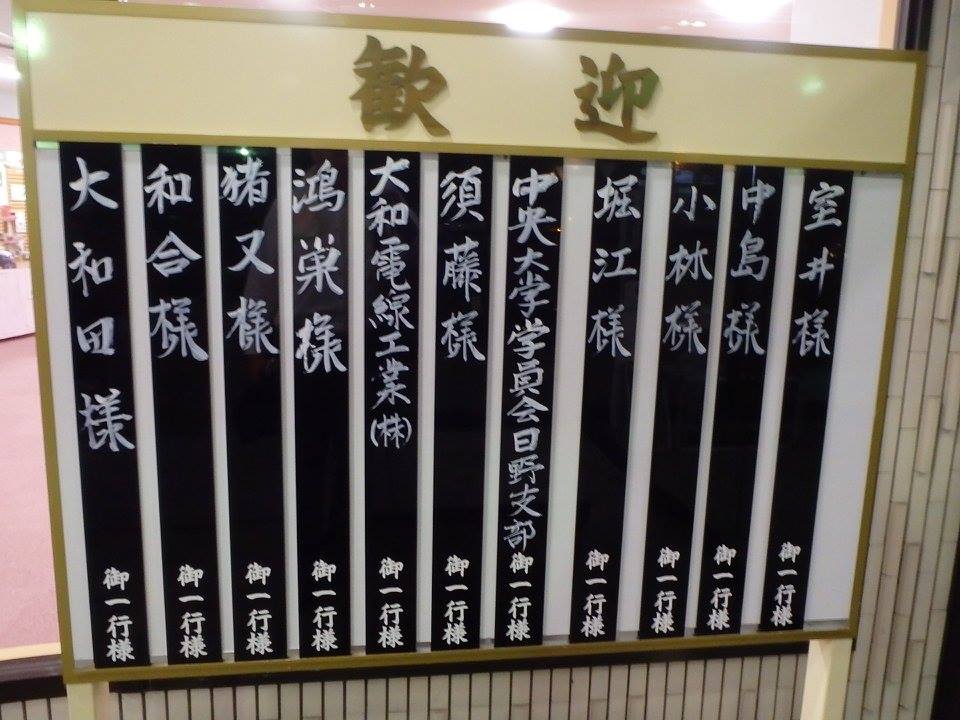 歓迎
室井様 御一行様
中島様 御一行様
小林様 御一行様
堀江様 御一行様
中央大学学員会日野支部 御一行様
須藤様 御一行様
大和電線工業(株) 御一行様
鴻巣様 御一行様
猪又様 御一行様
和合様 御一行様
大和田様 御一行様